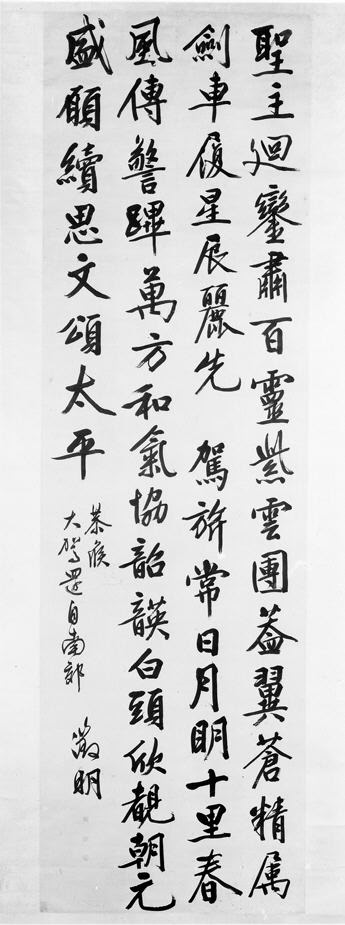 聖主廻鑾肅百靈紫雲團葢翼蒼精属
劍車履星辰麗先 駕旂常日月明十里春
風傳警蹕萬方和氣協韶韺白頭欣覩朝元
盛願續思文頌太平
恭候
大駕還自南郊
徵明